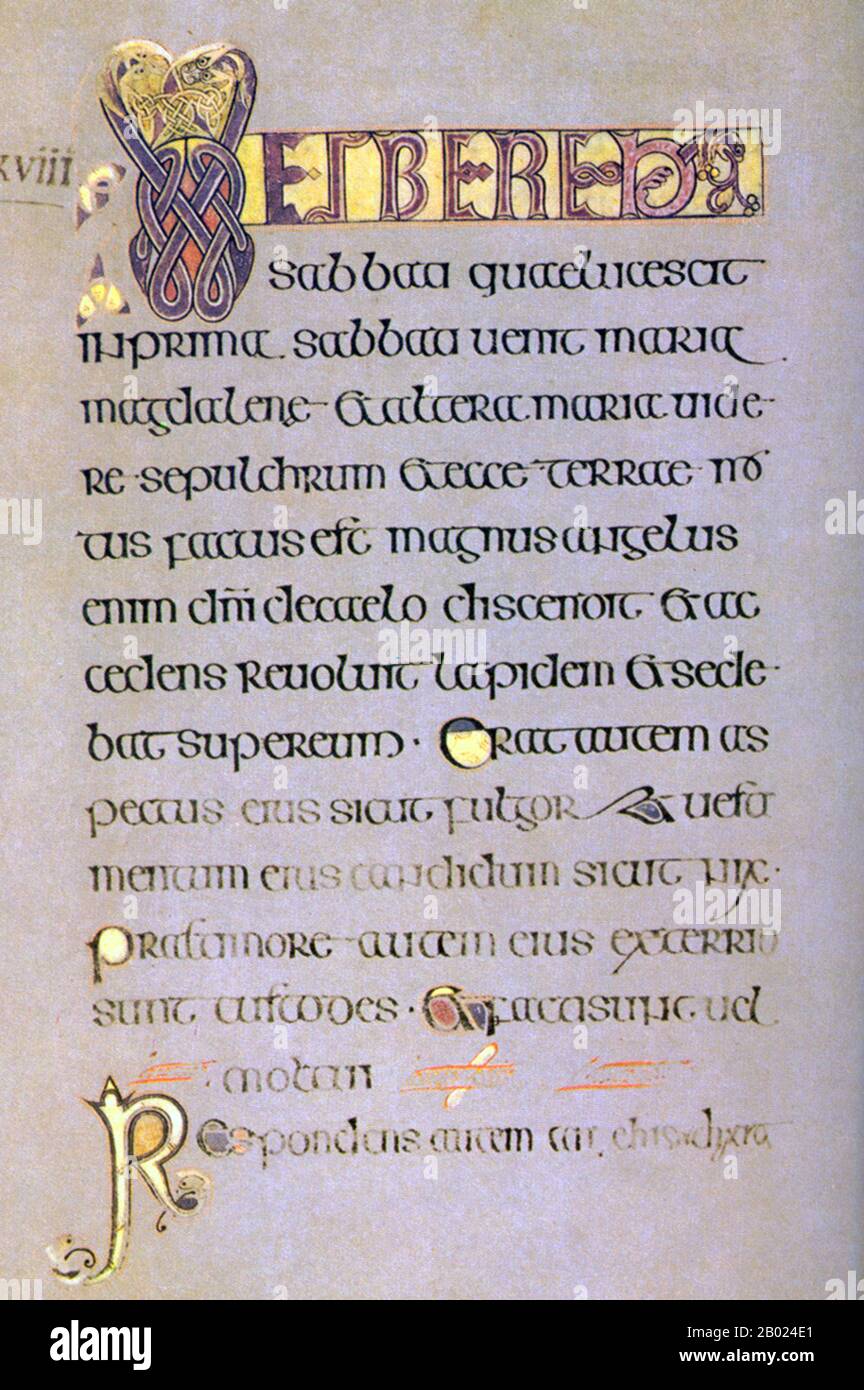 xviii
VESBERE
sabbati quaelucescit
inprima sabbati uenit maria
magdalene & altera maria uide
re sepulchrum & ecce terrae mo
tus factus est magnus angelus
enim dñi decaelo discendit & ac
cedens reuoluit lapidem & sede
bat supereum · Erat autem as
pectus eius sicut fulgor & uesti
mentum eius candidum sicut nix ·
Prae timore autem eius exterriti
sunt custodes · & facti sunt uel
Respondens autem
alamy
Image ID: 2B024E1
www.alamy.com